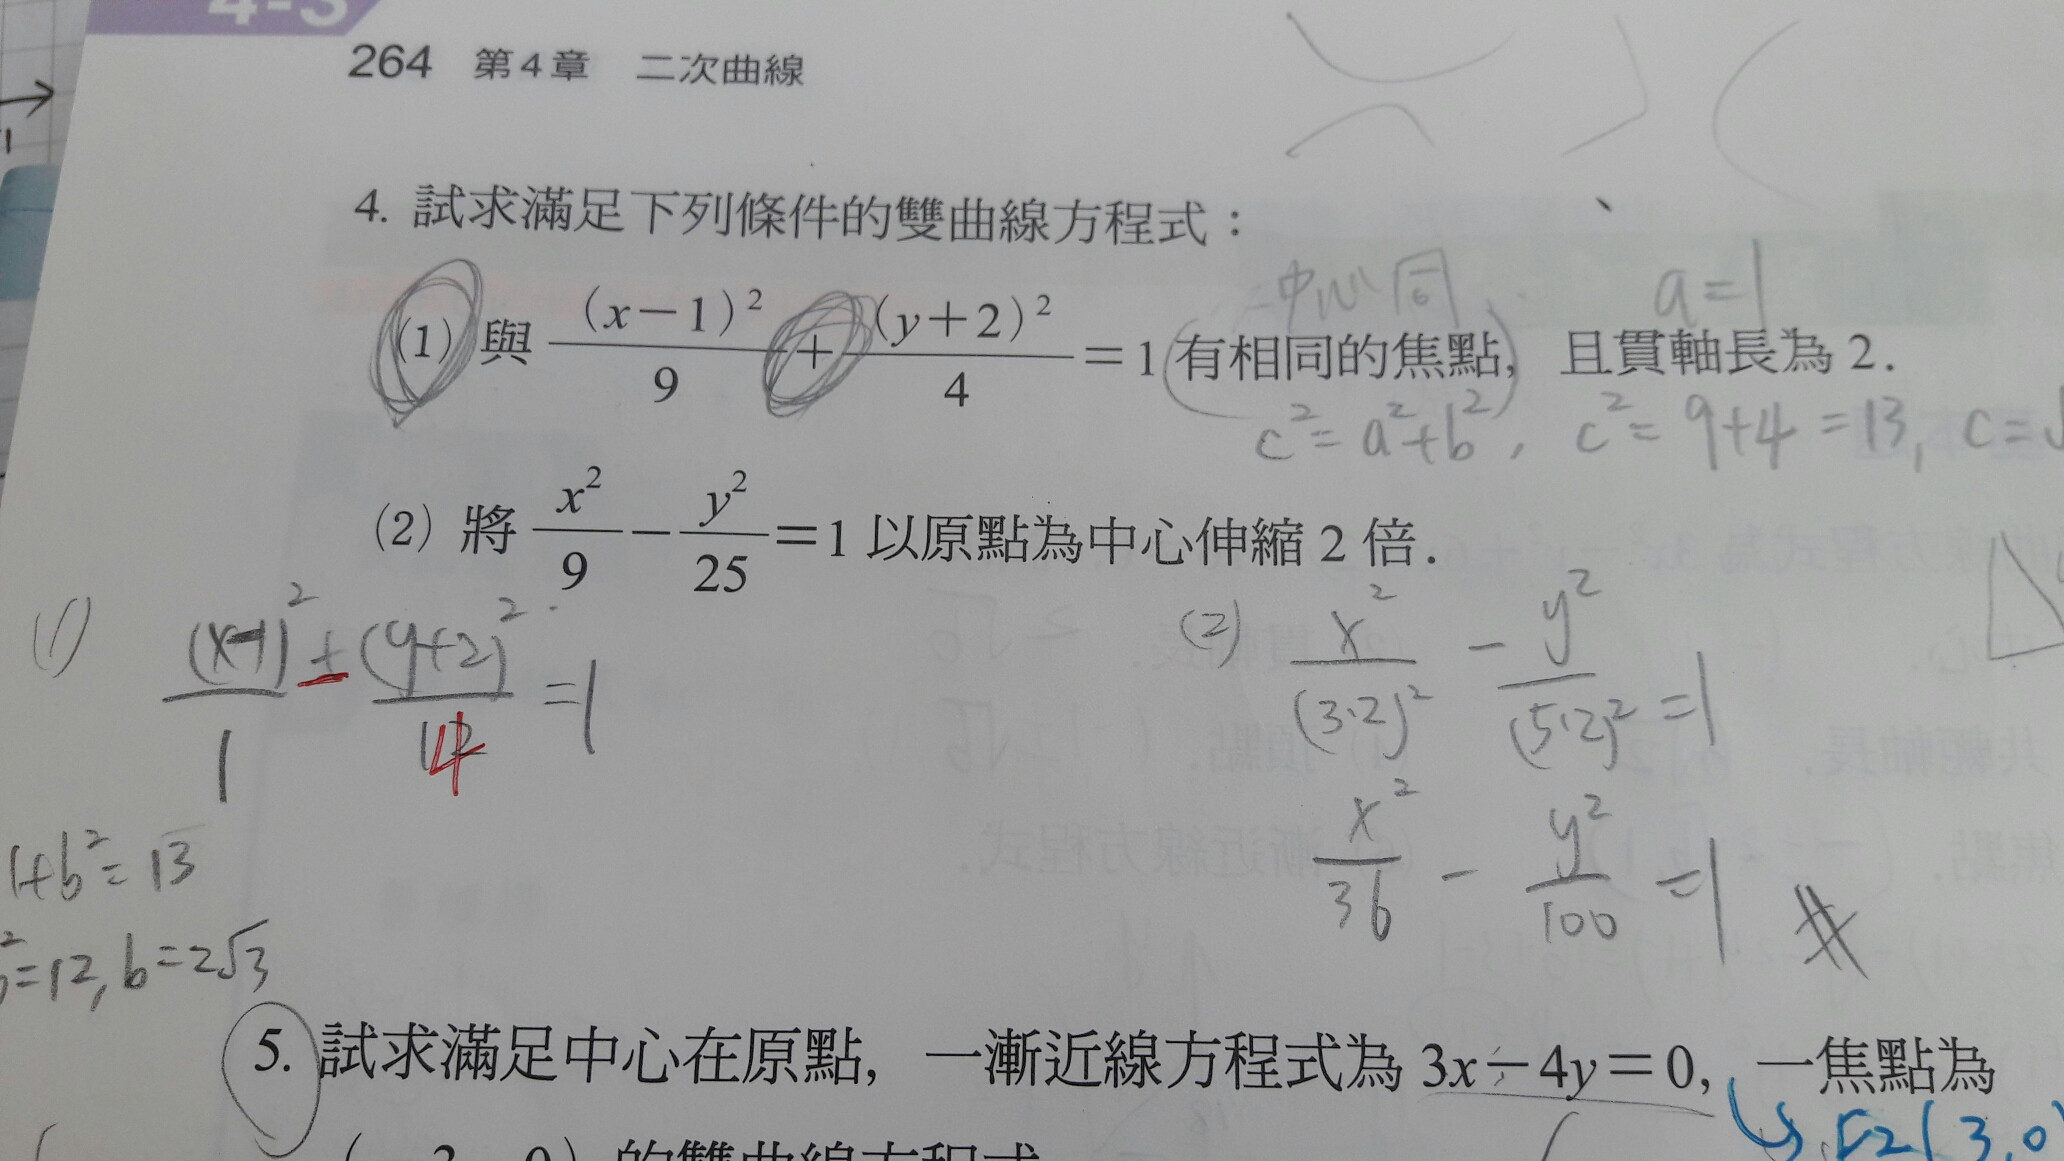 4-3
264 第4章 二次曲線
4. 試求滿足下列條件的雙曲線方程式：
中心同 a=1
(1) 與 (x-1)²/9 + (y+2)²/4 = 1 有相同的焦點, 且貫軸長為 2.
c²=a²+b², c²=9+4=13, c=
(2) 將 x²/9 - y²/25 = 1 以原點為中心伸縮 2 倍.
(1) (x-1)²/1 - (y+2)²/4 = 1
1+b²=13
²=12, b=2√3
(2) x²/(3·2)² - y²/(5·2)² = 1
x²/36 - y²/100 = 1
5. 試求滿足中心在原點, 一漸近線方程式為 3x-4y=0, 一焦點為
F2(3,0)
的雙曲線方程式